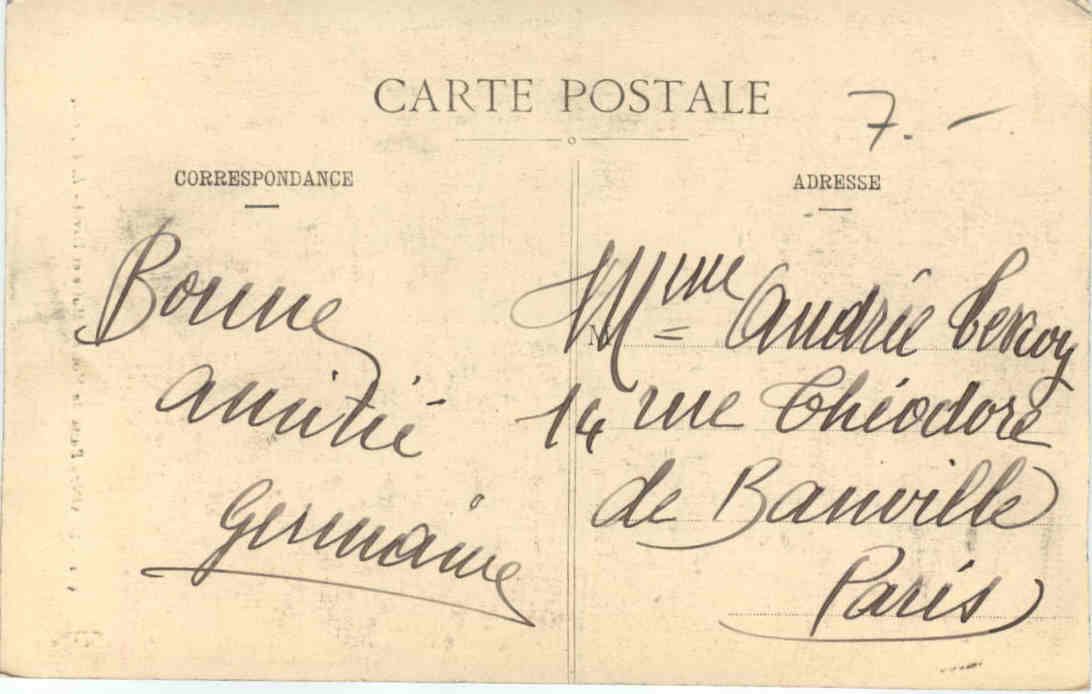 CARTE POSTALE
7.-
CORRESPONDANCE
Bonne
amitié
Germaine
ADRESSE
M
Mme Andrée Leroy
14 rue Théodore
de Banville
Paris